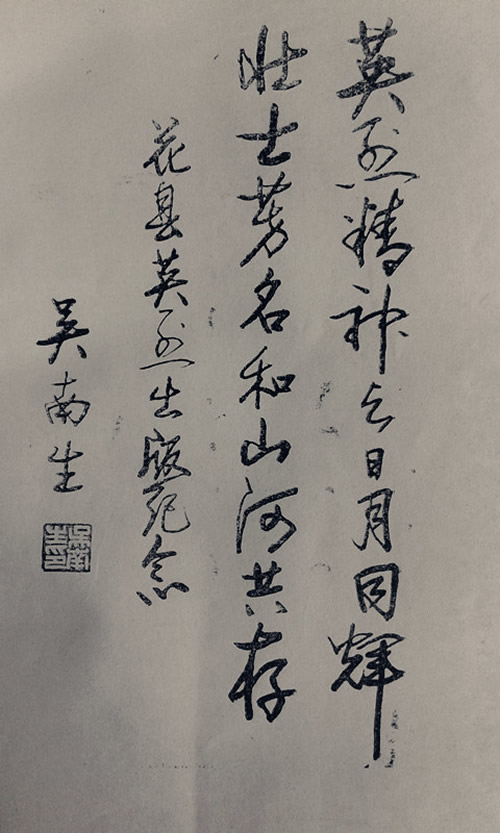 英烈精神与日月同辉
壮士芳名和山河共存
花县英烈出版纪念
吴南生
吴南生印